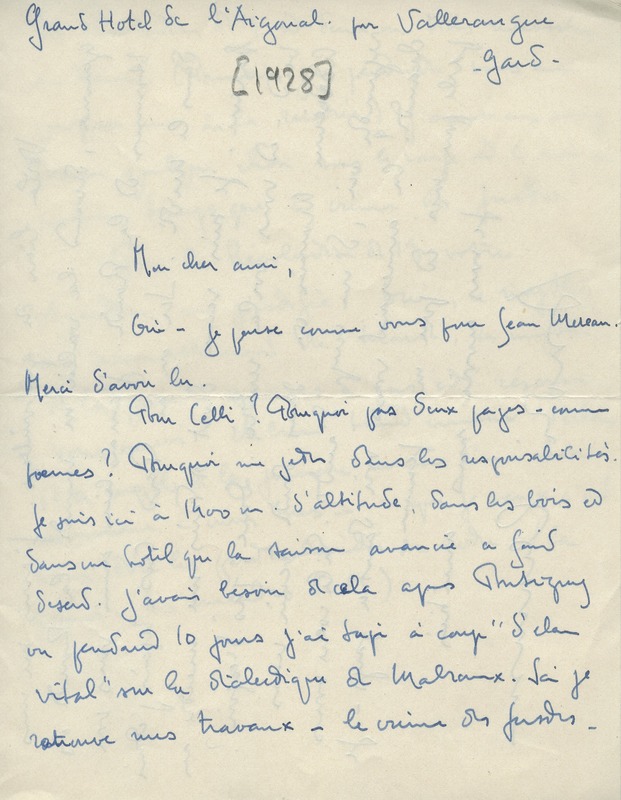 Grand Hotel de l'Aigoual. par Valleraugue
- Gard -
[1928]
Mon cher ami,
Oui - je pense comme vous pour Jean
Merci d'avoir lu.
Pour Celli ? Pourquoi pas deux pages - comme
poemes ? Pourquoi me jeter dans les responsabilités.
Je suis ici à 1400 m. d'altitude, dans les bois et
dans un hotel que la saison avancée a fait
desert. J'avais besoin de cela apres Pontigny
ou pendant 10 jours j'ai tapé à coup "d'élan
vital" sur la dialectique de Malraux. Ici je
retrouve mes travaux - le crime des justes -